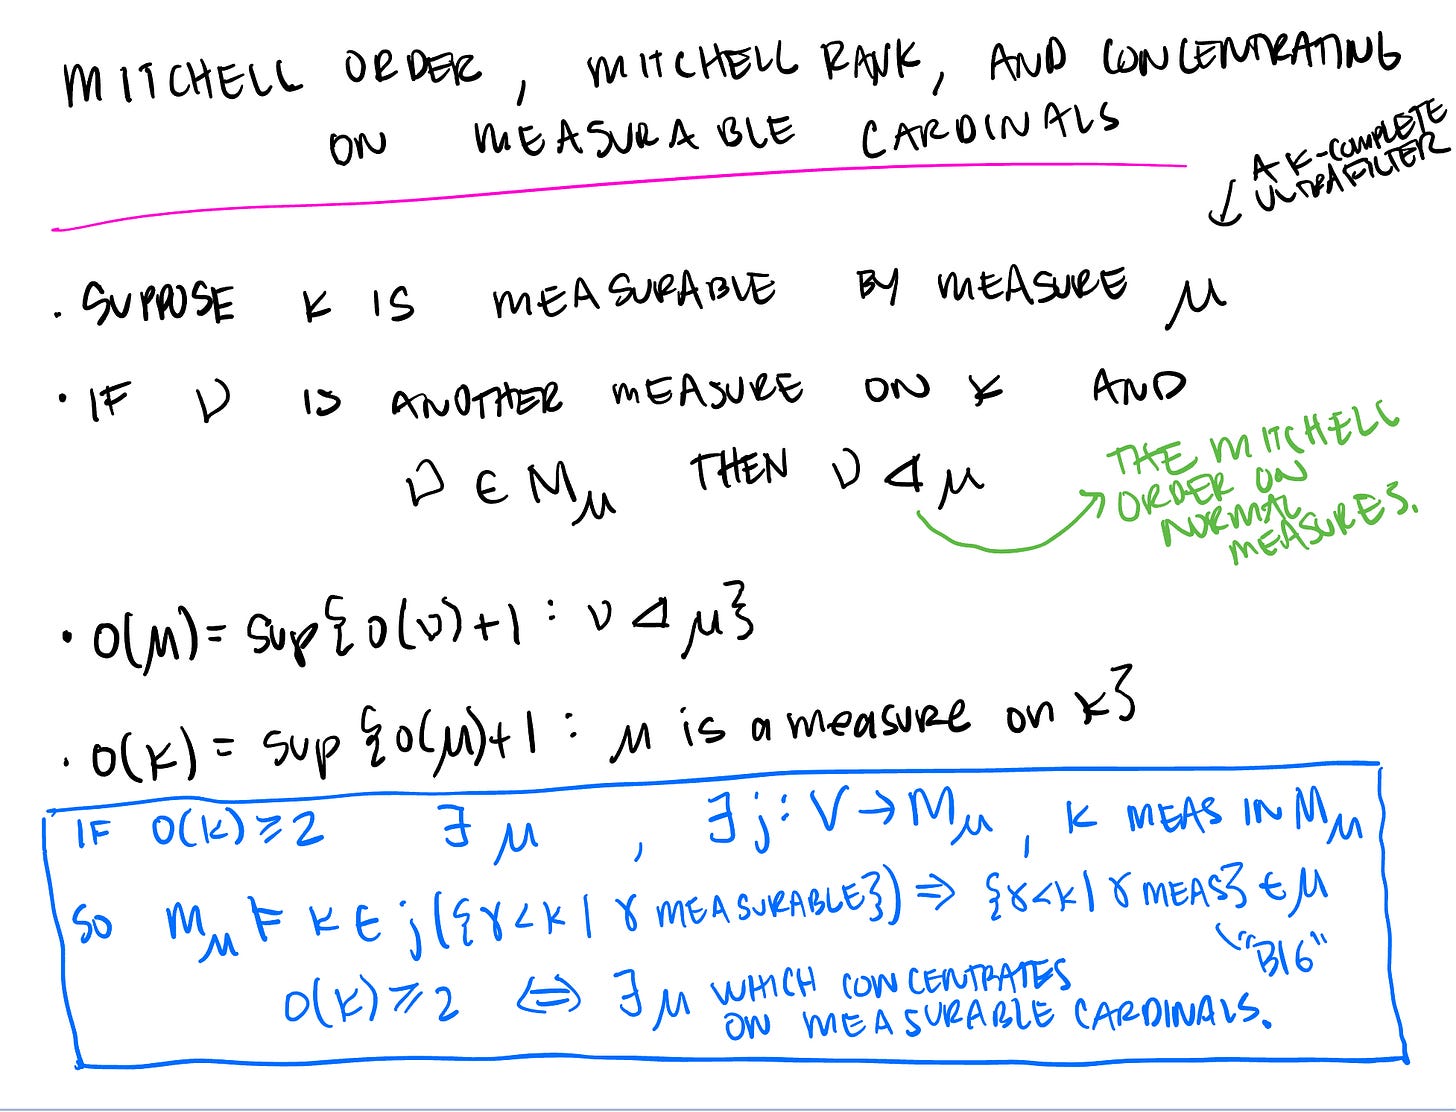 MITCHELL ORDER, MITCHELL RANK, AND CONCENTRATING
ON MEASURABLE CARDINALS
A K-COMPLETE
ULTRAFILTER
· SUPPOSE K IS MEASURABLE BY MEASURE μ
· IF ν IS ANOTHER MEASURE ON K AND
ν ∈ M_μ THEN ν ◁ μ
THE MITCHELL
ORDER ON
NORMAL
MEASURES.
· O(μ) = sup{O(ν)+1 : ν ◁ μ}
· O(K) = sup{O(μ)+1 : μ is a measure on K}
IF O(K) ⩾ 2 ∃ μ , ∃ j: V → M_μ , K MEAS IN M_μ
SO M_μ ⊨ K ∈ j({γ<K | γ MEASURABLE}) ⇒ {γ<K | γ MEAS} ∈ μ
"BIG"
O(K) ⩾ 2 ⟺ ∃ μ WHICH CONCENTRATES
ON MEASURABLE CARDINALS.